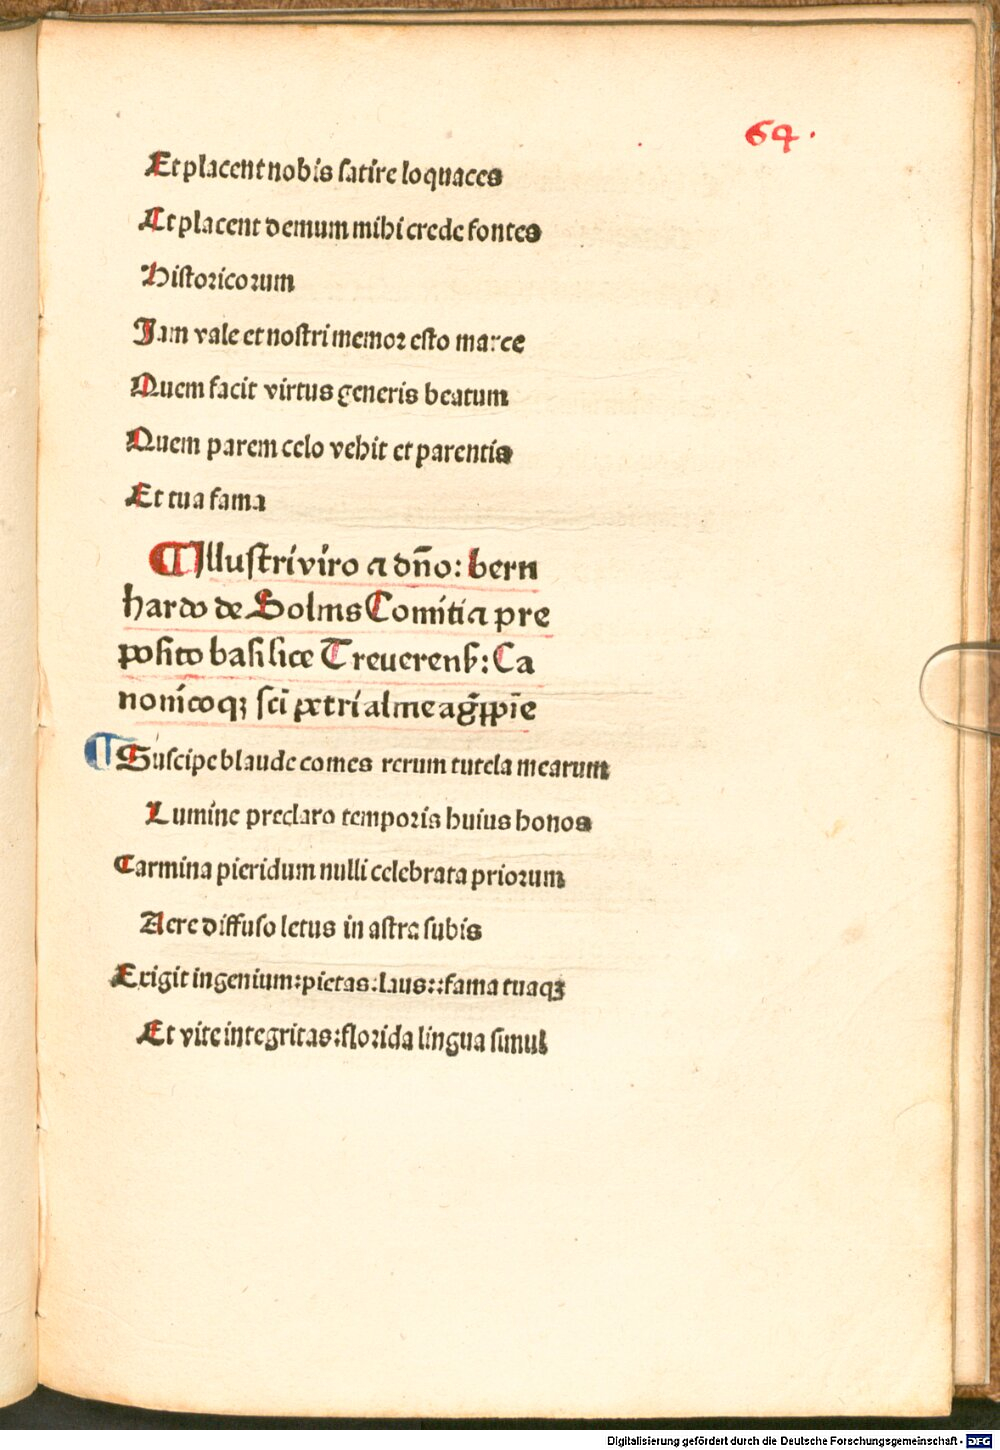 64.
Et placent nobis satire loquaces
Et placent demum mihi crede fontes
Historicorum
Jam vale et nostri memor esto marce
Quem facit virtus generis beatum
Quem parem celo vehit et parentis
Et tua fama
¶ Illustri viro a dn̄o: bern
hardo de Solms Comiti a pre
posito basilice Treuerenß: Ca
nonicoqꝫ sc̄i petri alme agr̄ppīe
¶ Suscipe blaude comes rerum tutela mearum
Lumine preclaro temporis huius honos
Carmina pieridum nulli celebrata priorum
Aere diffuso letus in astra subis
Exigit ingenium: pietas: laus:: fama tuaqꝫ
Et vite integritas: florida lingua simul
Digitalisierung gefördert durch die Deutsche Forschungsgemeinschaft - DFG